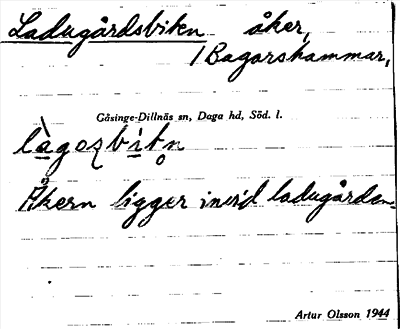 Ladugårdsbiten åker,
/ Bagarshammar,
Gåsinge-Dillnäs sn, Daga hd, Söd. l.
Åkern ligger invid ladugården.
Artur Olsson 1944